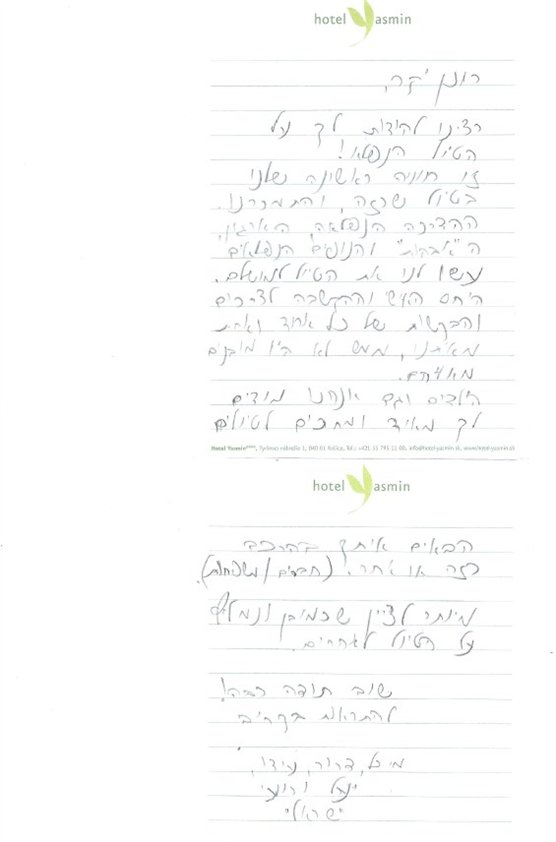 hotel Yasmin
רונן יקר,
רצינו להודות לך על
הטיול הנפלא!
זו חוויה ראשונה שלנו
בטיול שכזה, והתמכרנו.
ההדרכה הנפלאה, הארגון,
ה"אבהות" והנופים הנפלאים
עשו לנו את הטיול למושלם.
היחס האישי וההקשבה לצרכים
והבקשות של כל אחד ואחת
מאיתנו, ממש לא היו מובנים
מאליהם.
הילדים וגם אנחנו מודים
לך מאוד ומחכים לטיולים
Hotel Yasmin****, Tyršovo nábrežie 1, 040 01 Košice, Tel.: +421 55 795 11 00, info@hotel-yasmin.sk, www.hotel-yasmin.sk
hotel Yasmin
הבאים איתך בהרכב
כזה או אחר. (חברים/משפחות).
מיותר לציין שכמובן ונמליץ
על הטיול לאחרים.
שוב תודה רבה!
להתראות בקרוב
מיכל, דרור, עידו,
יובל ורועי
ישראלי